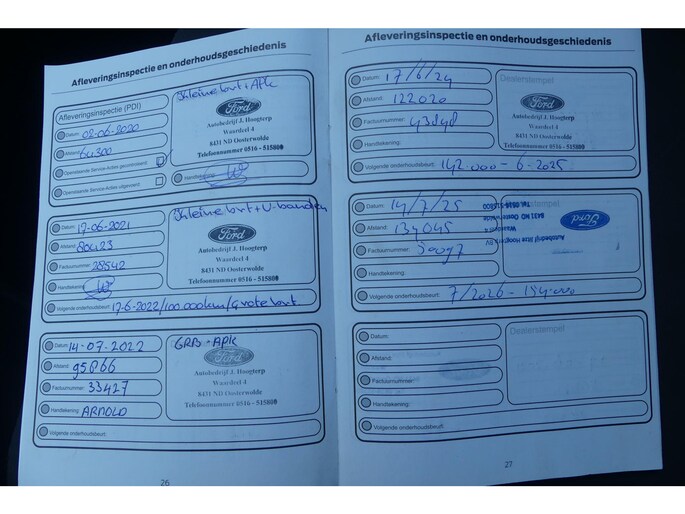 Afleveringsinspectie en onderhoudsgeschiedenis
Afleveringsinspectie (PDI)
Datum: 02-06-2020
Afstand: 64300
Openstaande Service-Acties gecontroleerd:
Openstaande Service-Acties uitgevoerd:
Kleine brt + APK
Ford
Autobedrijf J. Hoogterp
Waardeel 4
8431 ND Oosterwolde
Telefoonnummer 0516 - 515800
Handtekening:
Datum: 17-06-2021
Afstand: 80423
Factuurnummer: 28542
Handtekening:
Volgende onderhoudsbeurt: 17-6-2022/100.000km/Grote brt
Kleine brt + V-banden
Ford
Autobedrijf J. Hoogterp
Waardeel 4
8431 ND Oosterwolde
Telefoonnummer 0516 - 515800
Datum: 14-07-2022
Afstand: 95866
Factuurnummer: 33427
Handtekening: ARNOLD
Volgende onderhoudsbeurt:
GRB + APK
Ford
Autobedrijf J. Hoogterp
Waardeel 4
8431 ND Oosterwolde
Telefoonnummer 0516 - 515800
26
Afleveringsinspectie en onderhoudsgeschiedenis
Datum: 17/6/24
Afstand: 122020
Factuurnummer:
Handtekening:
Volgende onderhoudsbeurt: 142.000 - 6-2025
Dealerstempel
Ford
Autobedrijf J. Hoogterp
Waardeel 4
8431 ND Oosterwolde
Telefoonnummer 0516 - 515800
Datum: 14/7/25
Afstand: 134045
Factuurnummer:
Handtekening:
Volgende onderhoudsbeurt: 7/2026 - 154.000
Ford
Waardeel 4
8431 ND Oosterwolde
Datum:
Afstand:
Factuurnummer:
Handtekening:
Volgende onderhoudsbeurt:
Dealerstempel
27